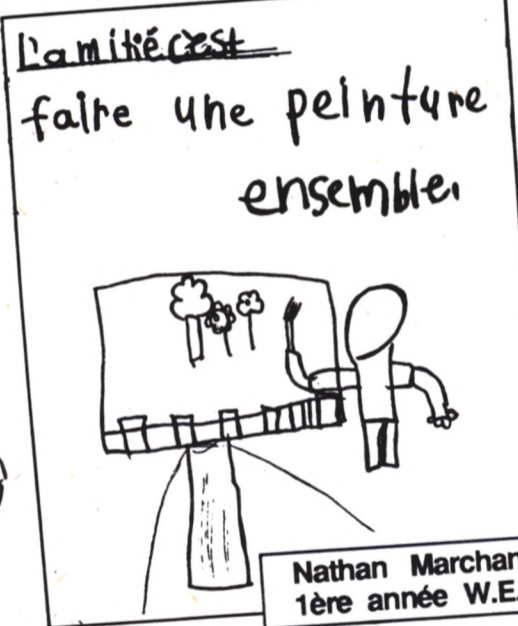 L'amitié c'est
faire une peinture
ensemble.
Nathan Marchan
1ère année W.E.